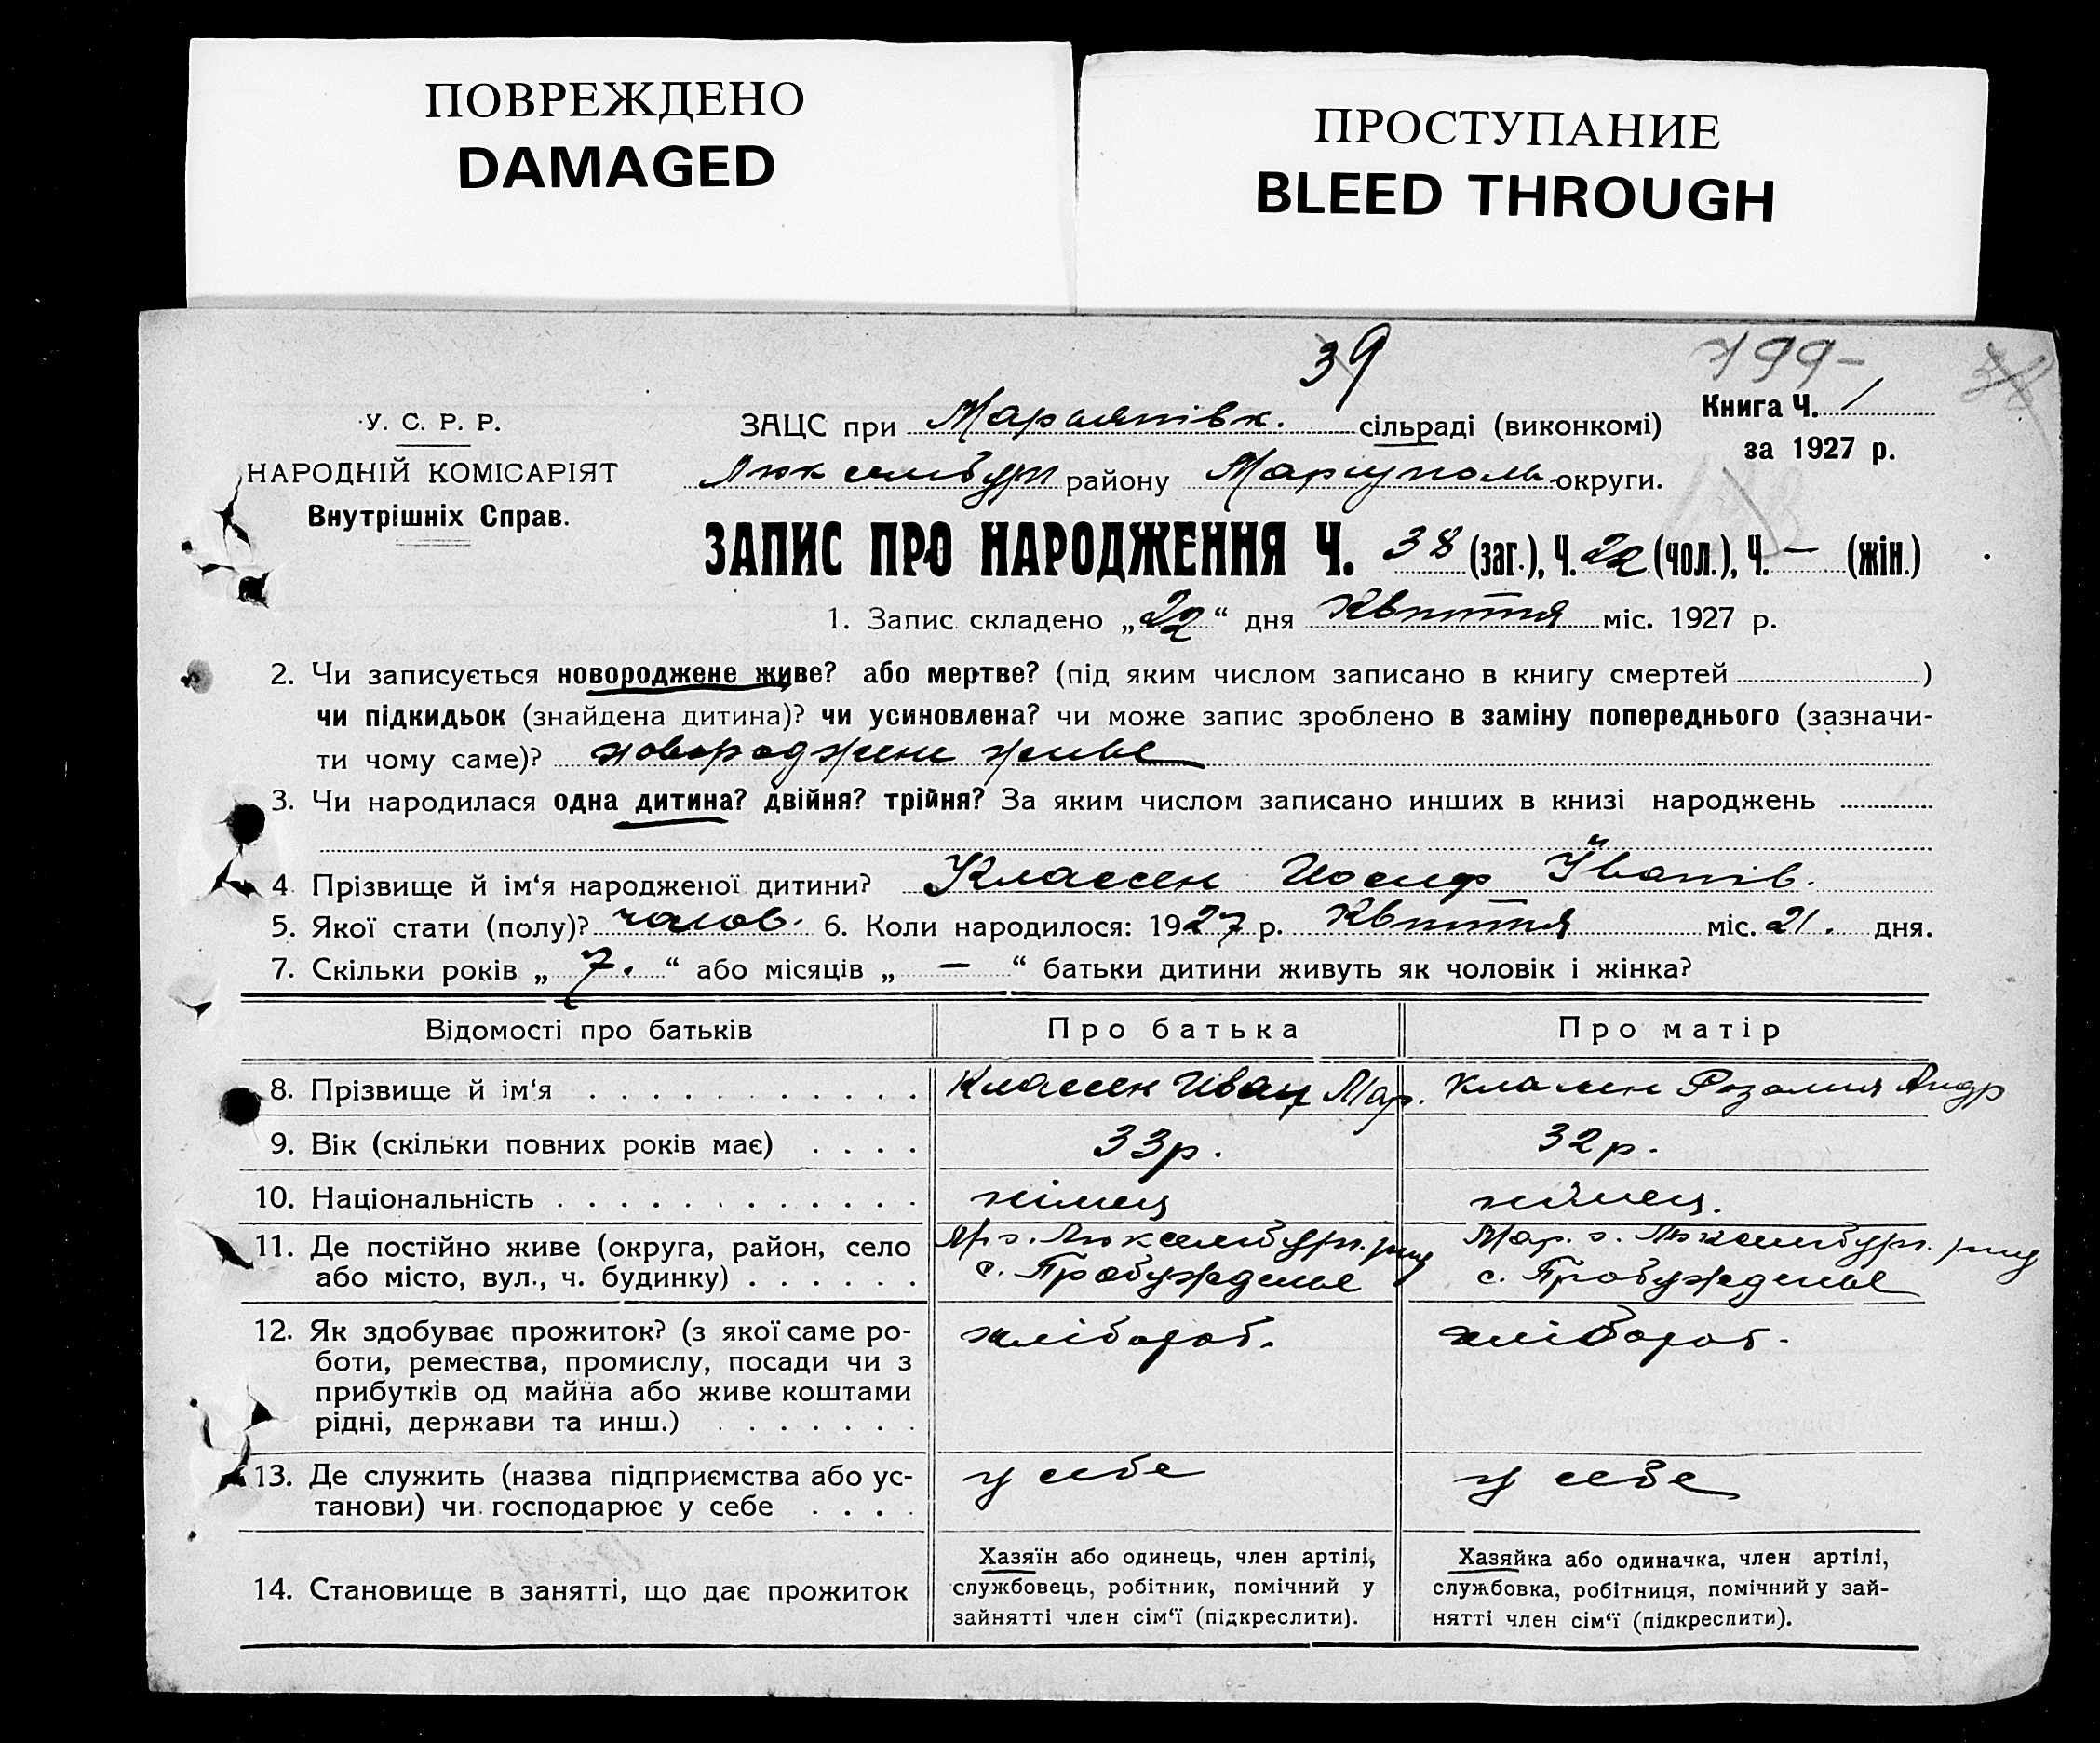 ПОВРЕЖДЕНО
DAMAGED
ПРОСТУПАНИЕ
BLEED THROUGH
39
799-
38
У. С. Р. Р.
НАРОДНІЙ КОМІСАРІЯТ
Внутрішніх Справ.
ЗАЦС при Мар'янівк. сільраді (виконкомі)
Люксембург району Маріуполь округи.
Книга Ч. 1
за 1927 р.
ЗАПИС ПРО НАРОДЖЕННЯ Ч. 38 (заг.), Ч. 22 (чол.), Ч. — (жін.)
1. Запис складено „22“ дня Квіття міс. 1927 р.
2. Чи записується новороджене живе? або мертве? (під яким числом записано в книгу смертей )
чи підкидьок (знайдена дитина)? чи усиновлена? чи може запис зроблено в заміну попереднього (зазначи-
ти чому саме)? новороджене живе
3. Чи народилася одна дитина? двійня? трійня? За яким числом записано инших в книзі народжень
4. Прізвище й ім‘я народженої дитини? Классен Иосиф Іванів.
5. Якої стати (полу)? чолов. 6. Коли народилося: 1927 р. Квіття міс. 21. дня.
7. Скільки років „7.“ або місяців „—“ батьки дитини живуть як чоловік і жінка?
Відомості про батьків Про батька Про матір
8. Прізвище й ім‘я Классен Иван Мар. Классен Розалия Андр
9. Вік (скільки повних років має) 33р. 32р.
10. Національність німец німец.
11. Де постійно живе (округа, район, село
або місто, вул., ч. будинку)
Люксембург. рну
с. Пробужденье
Мар. о. Люксембург. рну
с. Пробужденье
12. Як здобуває прожиток? (з якої саме ро-
боти, ремества, промислу, посади чи з
прибутків од майна або живе коштами
рідні, держави та инш.)
хлібороб.
хлібороб.
13. Де служить (назва підприємства або ус-
танови) чи господарює у себе
у себе
у себе
14. Становище в занятті, що дає прожиток
Хазяїн або одинець, член артілі,
службовець, робітник, помічний у
зайнятті член сім‘ї (підкреслити).
Хазяйка або одиначка, член артілі,
службовка, робітниця, помічний у зай-
нятті член сім‘ї (підкреслити).